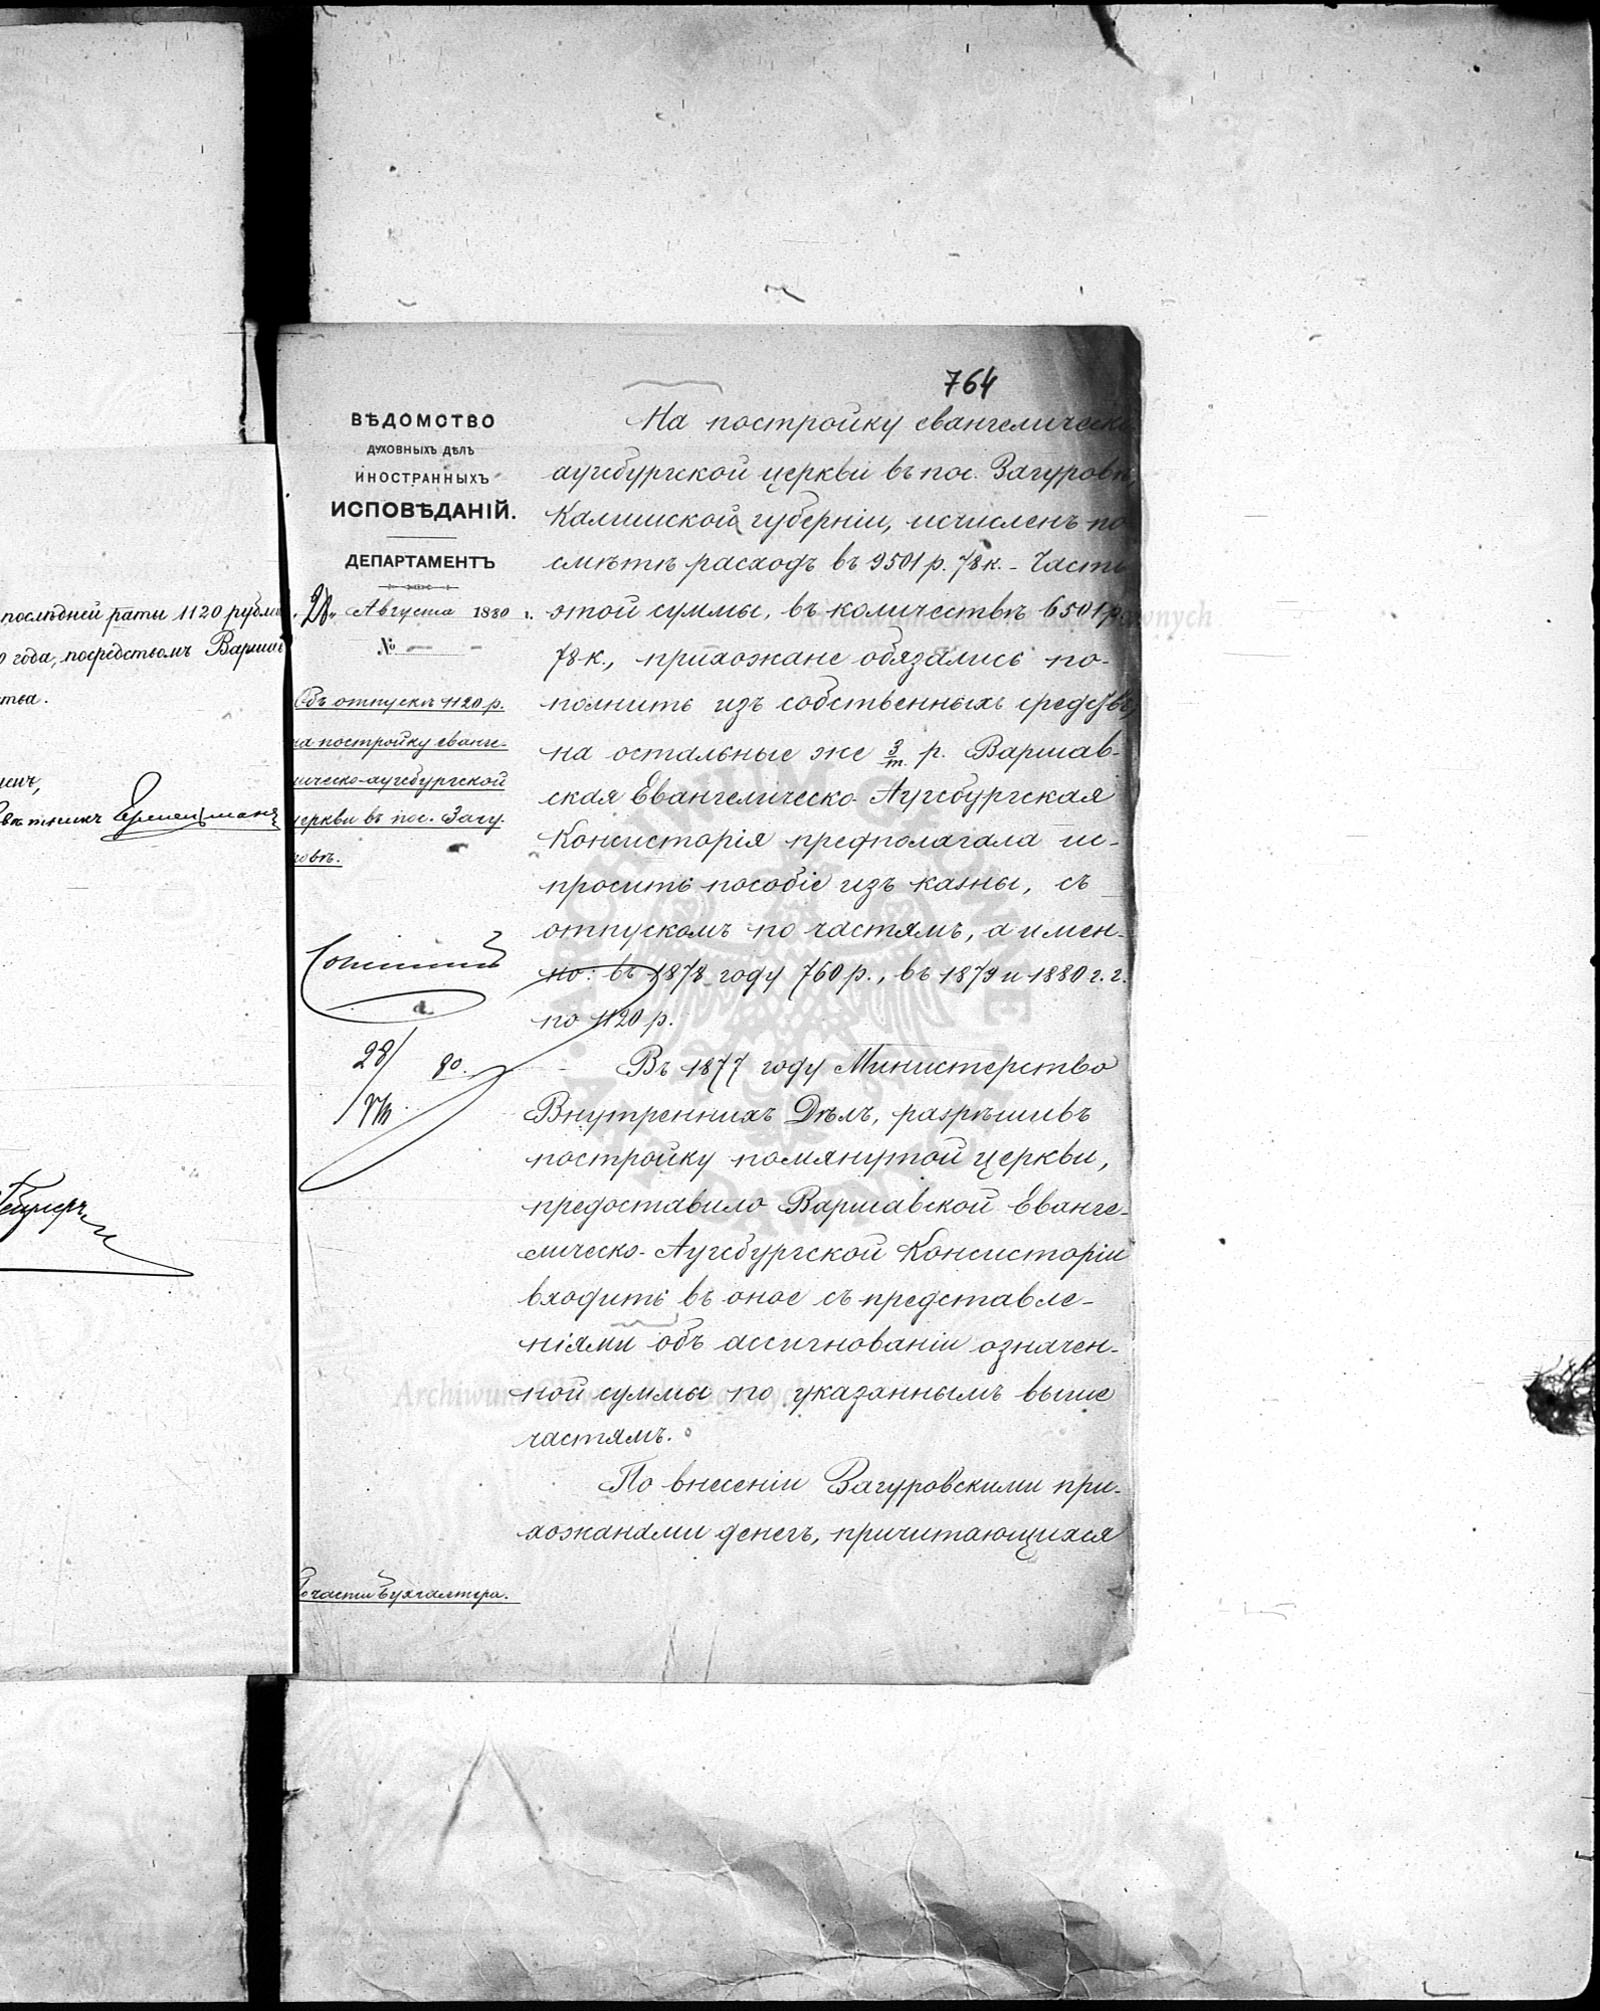 послѣдней раты 1120 рубл
года, посредствомъ Варшав
тва.
764
ВѢДОМСТВО
ДУХОВНЫХЪ ДѢЛЪ
ИНОСТРАННЫХЪ
ИСПОВѢДАНІЙ.
ДЕПАРТАМЕНТЪ
28 Августа 1880 г.
№
Объ отпускѣ 1120 р.
на постройку еванге-
лическо-аугсбургской
церкви въ пос. Загу-
ровѣ.
28/ 80.
/VIII
По части Бухгалтера.
На постройку евангелическо
аугсбургской церкви въ пос. Загуровѣ,
Калишской губерніи, исчисленъ по
смѣтѣ расходъ въ 9501 р. 78 к. - Часть
этой суммы, въ количествѣ 6501 р.
78 к., прихожане обязались по-
полнить изъ собственныхъ средствъ,
на остальные же 3/т. р. Варшав-
ская Евангелическо-Аугсбургская
Консисторія предполагала ис-
просить пособіе изъ казны, съ
отпускомъ по частямъ, а имен-
но: въ 1878 году 760 р., въ 1879 и 1880 г.г.
по 1120 р.
Въ 1877 году Министерство
Внутреннихъ Дѣлъ, разрѣшивъ
постройку помянутой церкви,
предоставило Варшавской Еванге-
лическо-Аугсбургской Консисторіи
входить въ оное съ представле-
ніями объ ассигнованіи означен-
ной суммы по указаннымъ выше
частямъ.
По внесеніи Загуровскими при-
хожанами денегъ, причитающихся